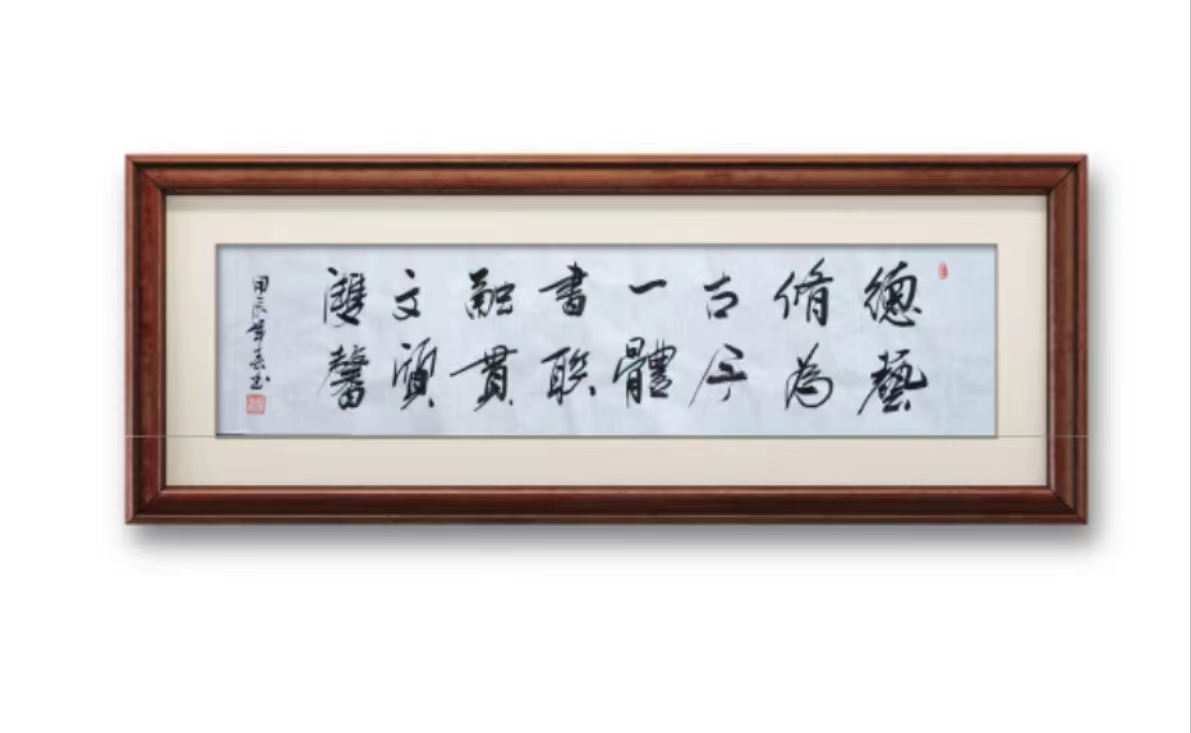 德藝
脩為
古今
一體
書联
融貫
文質
雙馨
甲辰年春